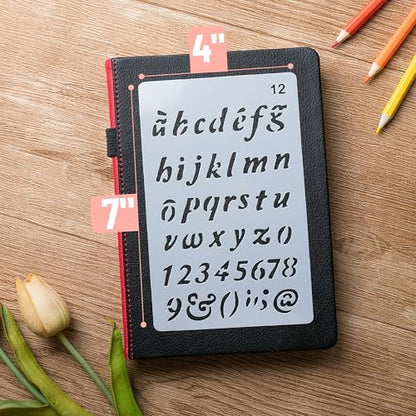 4"
12
àbcdéfg̃
hijklmn
õpqrstu
vwxyz()
12345678
7"
9&()!;@